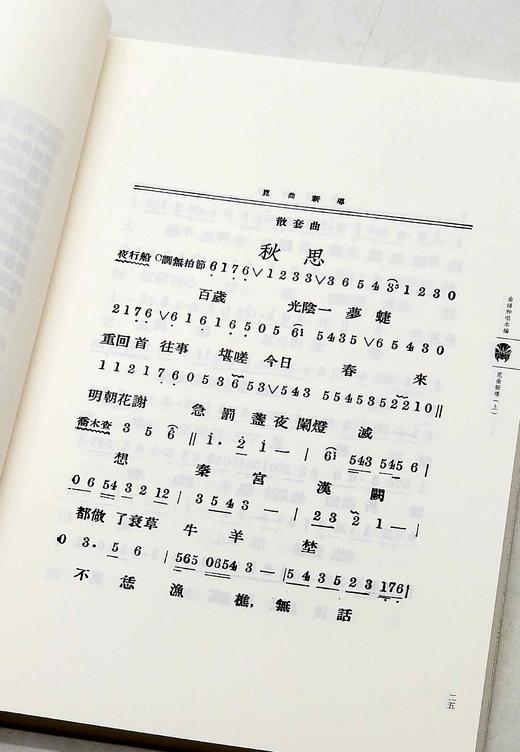 崑曲新導
散套曲
秋思
夜行船 C調無拍節 6176∨1233∨36543 5 01230
百歲 光陰一夢 蝶
2176∨6161650561∨65430
重回首 往事 堪嗟 今日 春 來
1121235323∨5435545352210‖
明朝花謝 急罰盞夜闌燈滅
喬木查 356|1·2|1—|61 543 5456|
想秦宮漢闕
0654 3212|3543—|2321—|
都做了衰草牛羊埜
03·56|565 0654|3—|54352 3176|
不恁漁樵，無話
曲譜和唱本編
崑曲新導（上）
二五